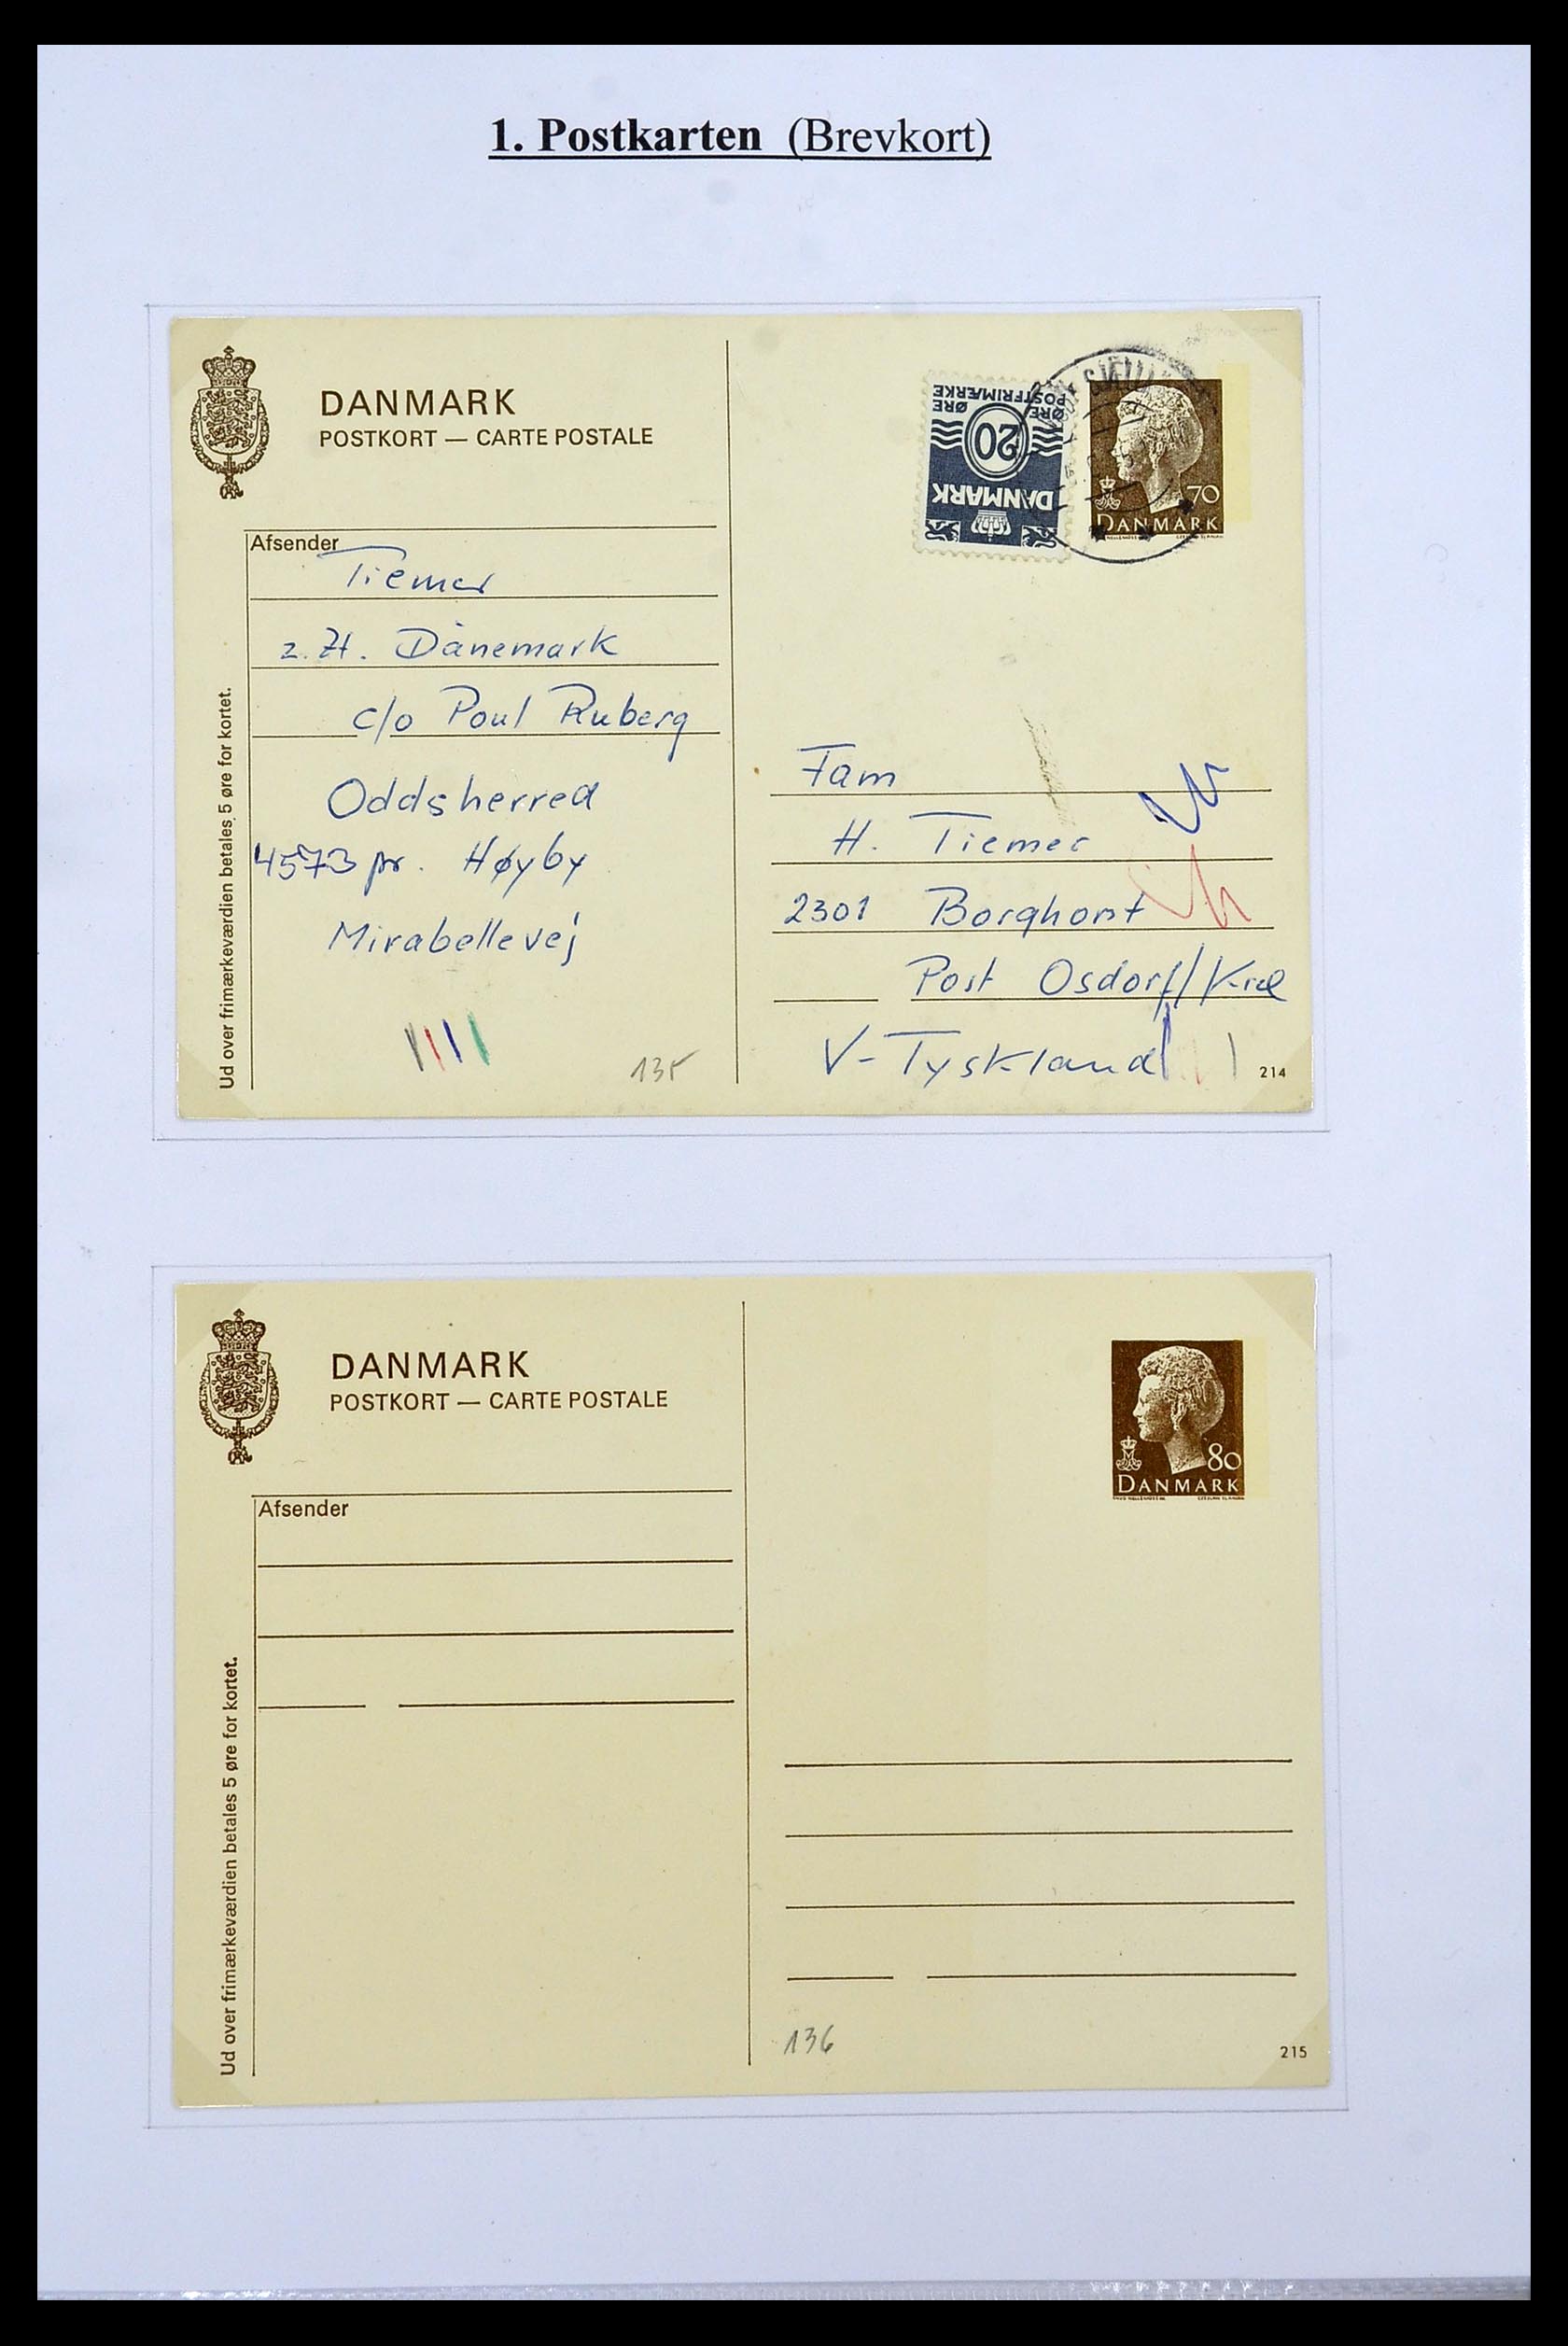 1. Postkarten (Brevkort)
DANMARK
POSTKORT — CARTE POSTALE
Afsender
Tiemer
z. Zt. Dänemark
c/o Poul Ruberg
Oddsherred
4573 pr. Høyby
Mirabellevej
Ud over frimærkeværdien betales 5 øre for kortet.
135
20
ØRE ØRE
POSTFRIMÆRKE
DANMARK
70
DANMARK
Fam
H. Tiemer
2301 Borghorst
Post Osdorf/Kiel
V-Tyskland
214
DANMARK
POSTKORT — CARTE POSTALE
Afsender
Ud over frimærkeværdien betales 5 øre for kortet.
80
DANMARK
136
215